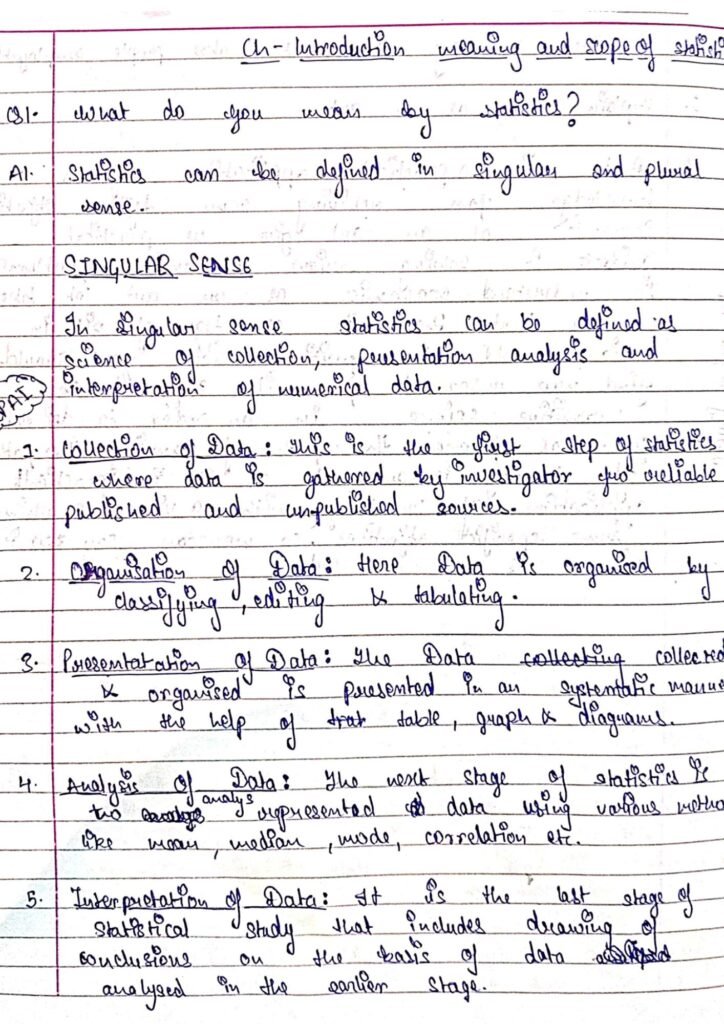 Ch- Introduction meaning and scope of statisti
Q1. What do you mean by statistics?
A1. Statistics can be defined in singular and plural
sense.
SINGULAR SENSE
In singular sense statistics can be defined as
science of collection, presentation analysis and
interpretation of numerical data.
PAI
1. Collection of Data: This is the first step of statistics
where data is gathered by investigator fro reliable
published and unpublished sources.
2. Organisation of Data: Here Data is organised by
classifying, editing & tabulating.
3. Presentatation of Data: The Data collecting collected
& organised is presented in an systematic manne
with the help of table, graph & diagrams.
4. Analysis of Data: The next stage of statistics is
to analys represented data using various metho
like mean, median, mode, correlation etc.
5. Interpretation of Data: It is the last stage of
statistical study that includes drawing of
conclusions on the basis of data
analysed in the earlier stage.